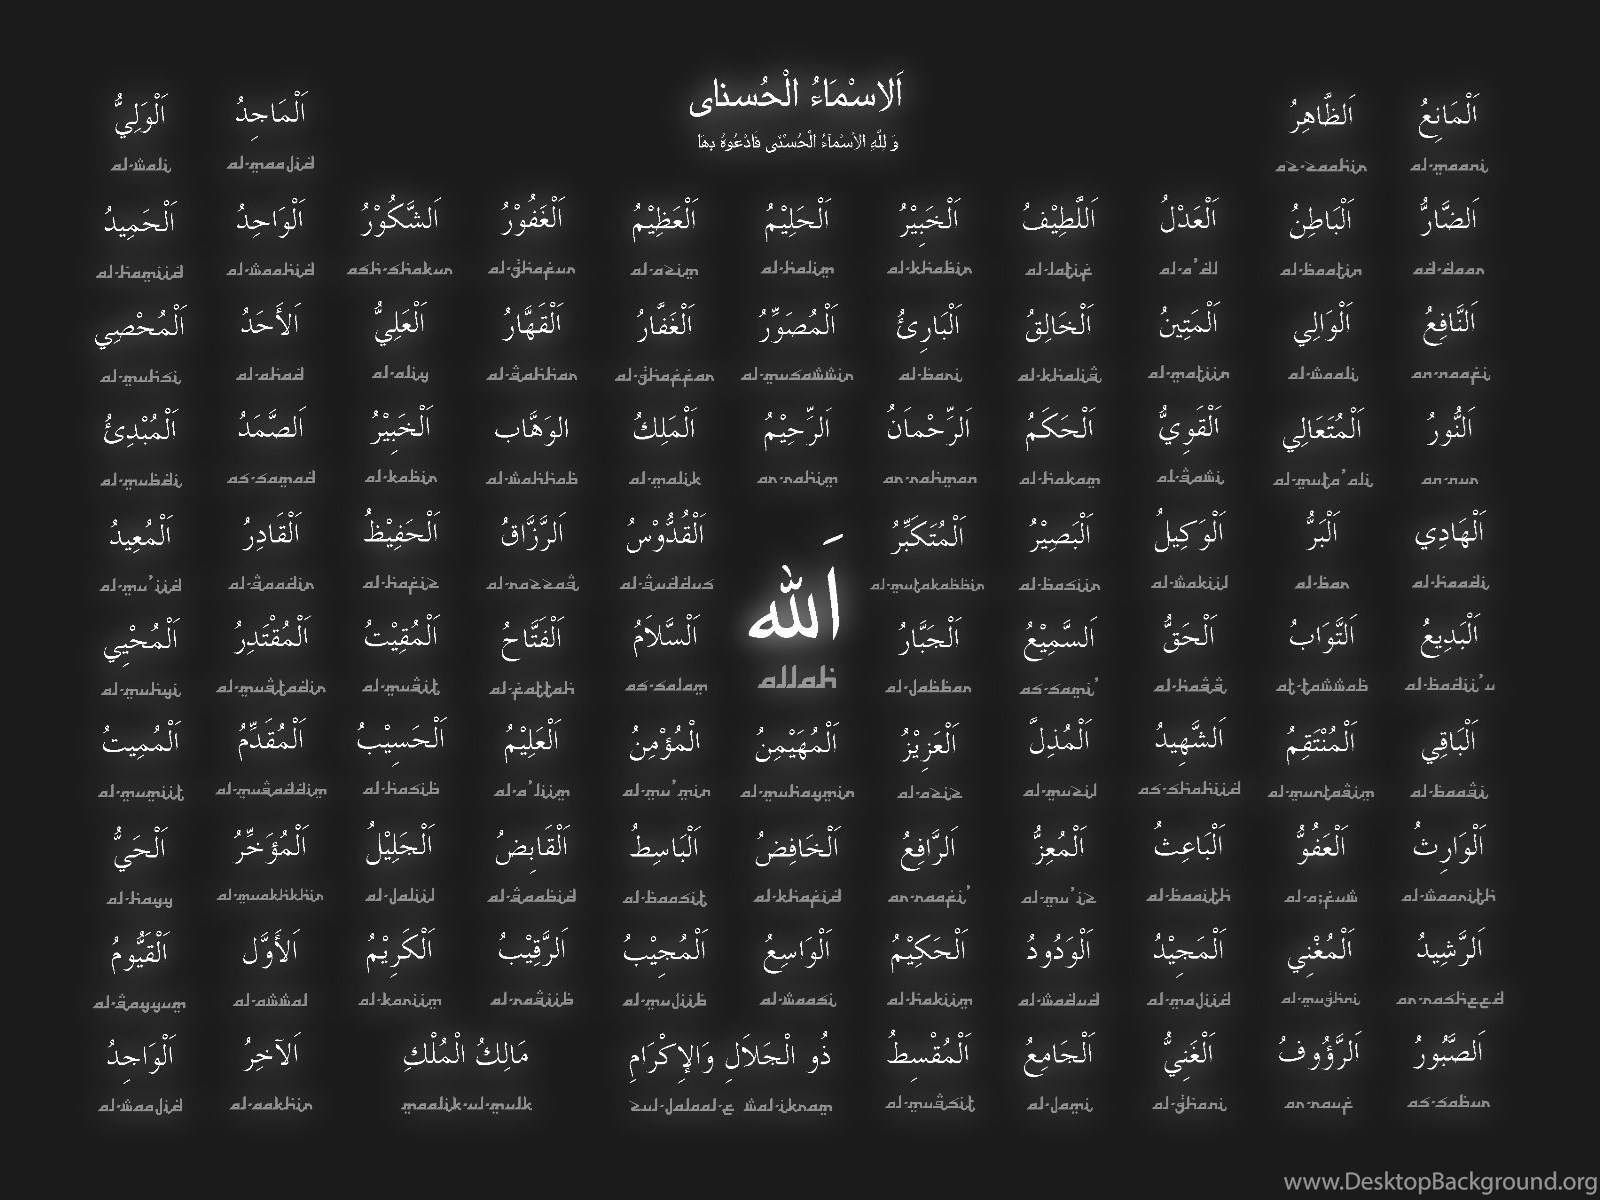 اَلاسْمَاءُ الْحُسناى
وَ لِلّٰهِ الاَسْمَآءُ الْحُسْنٰى فَادْعُوهُ بِهَا
اَلْمَانِعُ اَلظَّاهِرُ اَلْمَاجِدُ اَلْوَلِيُّ
al-wali al-maajid az-zaahir al-maani
اَلضَّارُّ اَلْبَاطِنُ اَلْعَدْلُ اَللَّطِيْفُ اَلْخَبِيْرُ اَلْحَلِيْمُ اَلْعَظِيْمُ اَلْغَفُوْرُ اَلشَّكُوْرُ اَلْوَاحِدُ اَلْحَمِيْدُ
al-hamiid al-waahid ash-shakur al-ghafur al-azim al-halim al-khabir al-latif al-a'dl al-baatin ad-daar
اَلنَّافِعُ اَلْوَالِي اَلْمَتِينُ اَلْخَالِقُ اَلْبَارِئُ اَلْمُصَوِّرُ اَلْغَفَّارُ اَلْقَهَّارُ اَلْعَلِيُّ اَلأَحَدُ اَلْمُحْصِي
al-muhsi al-ahad al-aliy al-qahhar al-ghaffar al-musawwir al-bari al-khaliq al-matiin al-waali an-naafi
اَلنُّورُ اَلْمُتَعَالِي اَلْقَوِيُّ اَلْحَكَمُ اَلرَّحْمَانُ اَلرَّحِيْمُ اَلْمَلِكُ الوَهَّاب اَلْخَبِيْرُ اَلصَّمَدُ اَلْمُبْدِئُ
al-mubdi as-samad al-kabir al-wahhab al-malik ar-rahim ar-rahman al-hakam al-qawi al-muta'ali an-nur
اَلْهَادِي اَلْبَرُّ اَلْوَكِيلُ اَلْبَصِيْرُ اَلْمُتَكَبِّرُ اَلْقُدُّوْسُ اَلرَّزَّاقُ اَلْحَفِيْظُ اَلْقَادِرُ اَلْمُعِيدُ
al-mu'iid al-qaadir al-hafiz al-razzaq al-quddus al-mutakabbir al-basiir al-wakiil al-bar al-haadi
اَلله
allah
اَلْبَدِيعُ اَلتَّوَابُ اَلْحَقُّ اَلسَّمِيْعُ اَلْجَبَّارُ اَلْسَّلاَمُ اَلْفَتَّاحُ اَلْمُقِيْتُ اَلْمُقْتَدِرُ اَلْمُحْيِي
al-muhyi al-muqtadir al-muqit al-fattah as-salam al-jabbar as-sami' al-haqq at-tawwab al-badii'u
اَلْبَاقِي اَلْمُنْتَقِمُ اَلشَّهِيدُ اَلْمُذِلَّ اَلْعَزِيْزُ اَلْمُهَيْمِنُ الْمُؤْمِنُ اَلْعَلِيْمُ اَلْحَسِيْبُ اَلْمُقَدِّمُ اَلْمُمِيتُ
al-mumiit al-muqaddim al-hasib al-a'liim al-mu'min al-muhaymin al-aziz al-muzil as-shahiid al-muntaqim al-baaqi
اَلْوَارِثُ اَلْعَفُوُّ اَلْبَاعِثُ اَلْمُعِزُّ اَلرَّافِعُ اَلْخَافِضُ اَلْبَاسِطُ اَلْقَابِضُ اَلْجَلِيْلُ اَلْمُؤَخِّرُ اَلْحَيُّ
al-hayy al-muakhkhir al-jaliil al-qaabid al-baasit al-khafid ar-raafi' al-mu'iz al-baaith al-a;fuw al-waarith
اَلرَّشِيدُ اَلْمُغْنِي اَلْمَجِيْدُ اَلْوَدُودُ اَلْحَكِيْمُ اَلْوَاسِعُ اَلْمُجِيْبُ اَلرَّقِيْبُ اَلْكَرِيْمُ اَلأَوَّل اَلْقَيُّومُ
al-qayyum al-awwal al-kariim al-raqiib al-mujiib al-waasi al-hakiim al-wadud al-majiid al-mughni ar-rasheed
اَلصَّبُورُ اَلرَّؤُوفُ اَلْغَنِيُّ اَلْجَامِعُ اَلْمُقْسِطُ ذُو الْجَلاَلِ وَالإِكْرَامِ مَالِكُ الْمُلْكِ اَلآخِرُ اَلْوَاجِدُ
al-waajid al-aakhir maalik-ul-mulk zul-jalaal-e wal-ikram al-muqsit al-jami al-ghani ar-rauf as-sabur
www.DesktopBackground.org